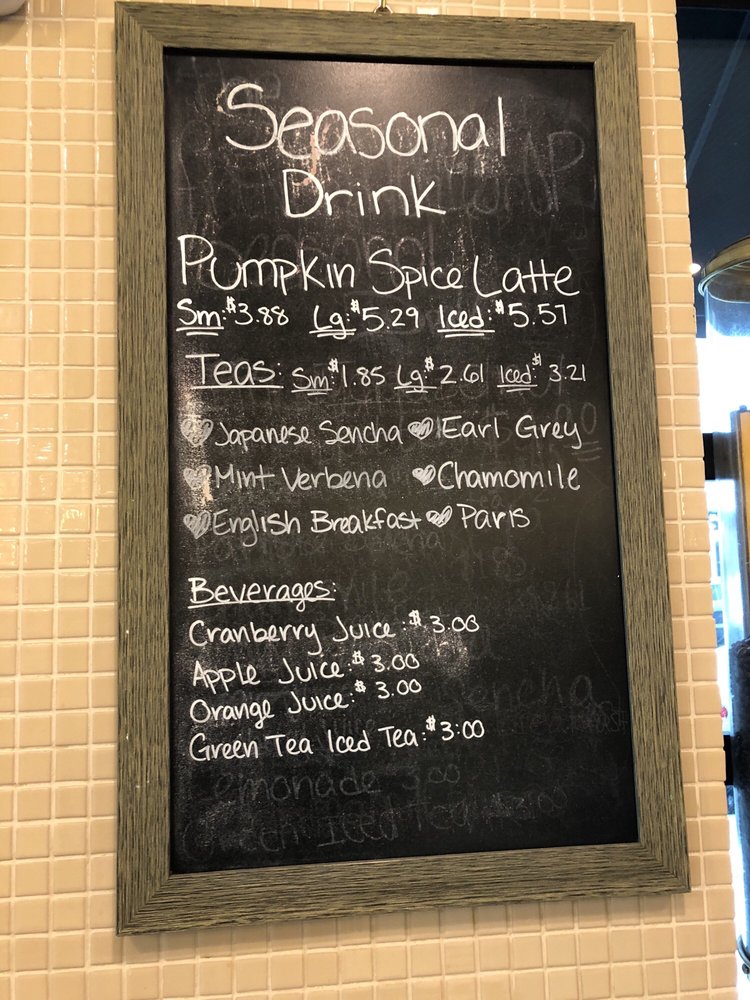 Seasonal
Drink
Pumpkin Spice Latte
Sm: $3.88 Lg: $5.29 Iced: $5.57
Teas: Sm: $1.85 Lg: $2.61 Iced: $3.21
Japanese Sencha Earl Grey
Mint Verbena Chamomile
English Breakfast Paris
Beverages:
Cranberry Juice: $3.00
Apple Juice: $3.00
Orange Juice: $3.00
Green Tea Iced Tea: $3:00
Lemonade 3.00
Green Iced Tea